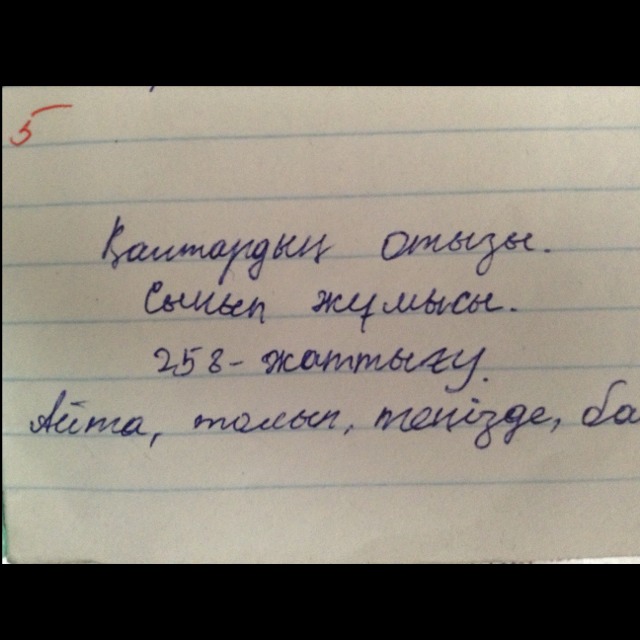 5
Қаңтардың отызы.
Сынып жұмысы.
258-жаттығу.
Айта, толып, теңізде, ба